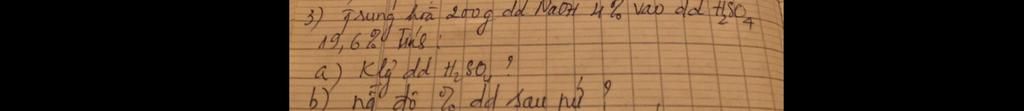 3) Trung hoà 200g dd NaOH 4% vào dd H₂SO₄
19,6% Tính:
a) Klg dd H₂SO₄?
b) nồ độ % dd sau pứ?